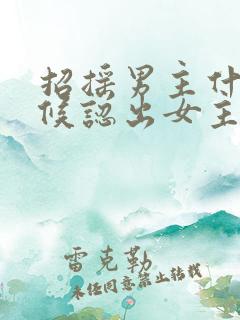 招摇男主什
候認出女主
雷克勒
未经同意禁止转载